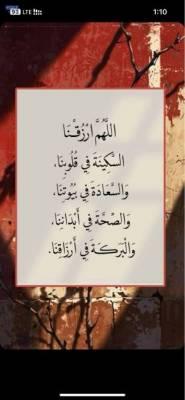 93 LTE 1:10
اللَّهُمَّ ارْزُقْنَا
السَّكِينَةَ فِي قُلُوبِنَا،
وَالسَّعَادَةَ فِي بُيُوتِنَا،
وَالصِّحَّةَ فِي أَبْدَانِنَا،
وَالْبَرَكَةَ فِي أَرْزَاقِنَا.